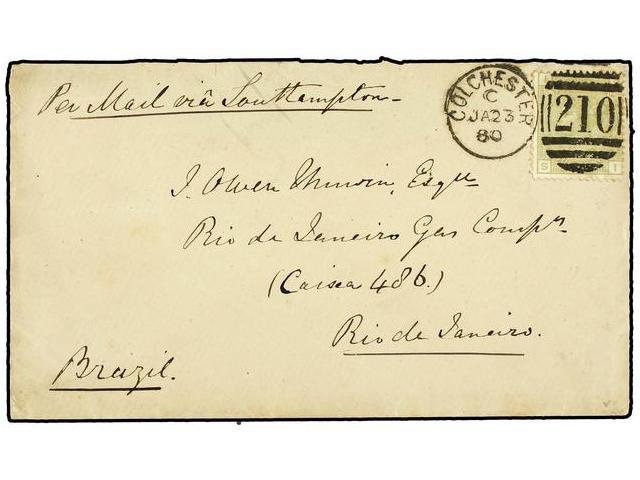 Per Mail viâ Southampton
COLCHESTER
C
JA 23
80
210
S I
J. Owen Unwin, Esqre
Rio de Janeiro Gas Compy
(Caixa 486.)
Rio de Janeiro.
Brazil.